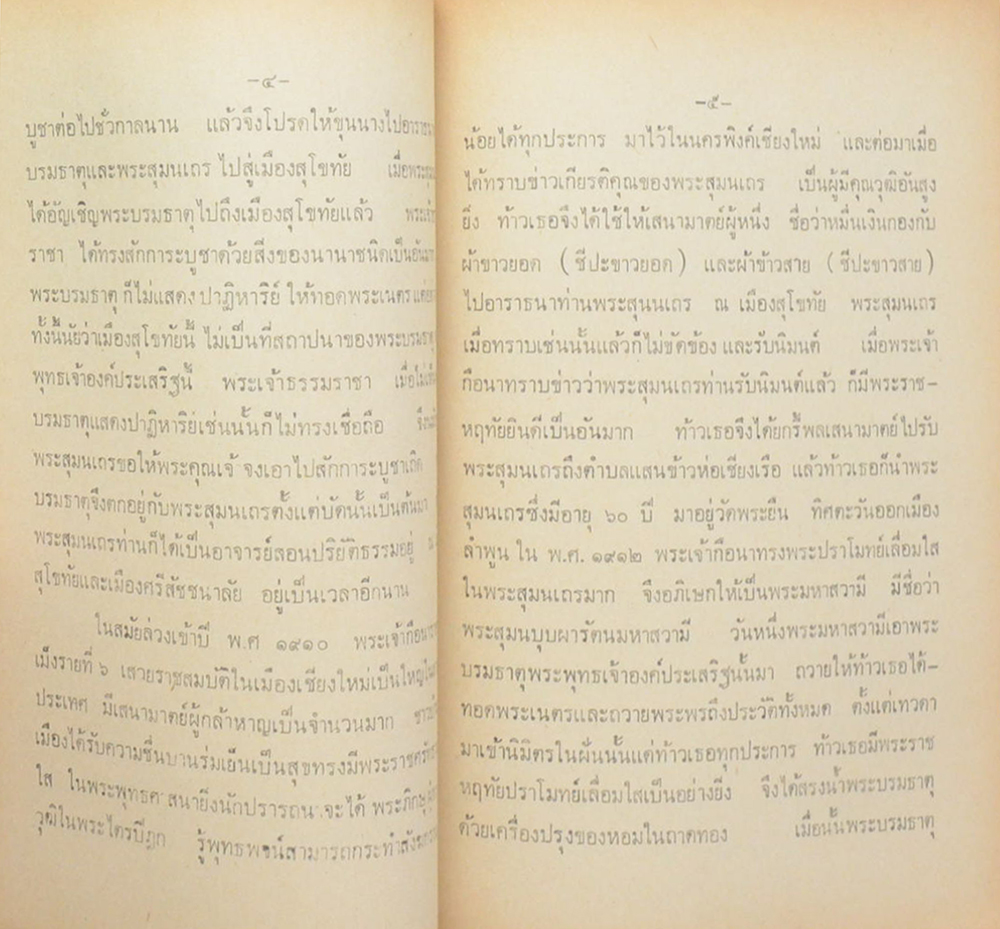 -๔-
บูชาต่อไปชั่วกาลนาน แล้วจึงโปรดให้ขุนนางไปอาราธนา
บรมธาตุและพระสุมนเถร ไปสู่เมืองสุโขทัย เมื่อพระสุม
ได้อัญเชิญพระบรมธาตุไปถึงเมืองสุโขทัยแล้ว พระเจ้า
ราชา ได้ทรงสักการะบูชาด้วยสิ่งของนานาชนิดเป็นอันมาก
พระบรมธาตุ ก็ไม่แสดง ปาฏิหาริย์ ให้ทอดพระเนตร
ทั้งนี้นัยว่าเมืองสุโขทัยนี้ ไม่เป็นที่สถาปนาของพระบรมธาตุ
พุทธเจ้าองค์ประเสริฐนี้ พระเจ้าธรรมราชา เมื่อไม่เห็น
บรมธาตุแสดงปาฏิหาริย์เช่นนั้นก็ไม่ทรงเชื่อถือ
พระสุมนเถรขอให้พระคุณเจ้ จงเอาไปสักการะบูชาเถิด
บรมธาตุจึงตกอยู่กับพระสุมนเถรตั้งแต่บัดนั้นเป็นต้นมา
พระสุมนเถรท่านก็ได้เป็นอาจารย์สอนปริยัติธรรมอยู่ ณ
สุโขทัยและเมืองศรีสัชชนาลัย อยู่เป็นเวลาอีกนาน
ในสมัยล่วงเข้าปี พ.ศ ๑๙๑๐ พระเจ้ากือนา
เม็งรายที่ ๖ เสวยราชสมบัติในเมืองเชียงใหม่เป็นใหญ่ใน
ประเทศ มีเสนามาตย์ผู้กล้าหาญเป็นจำนวนมาก
เมืองได้รับความชื่นบานร่มเย็นเป็นสุขทรงมีพระราชศรัทธา
ใส ในพระพุทธศ สนายิ่งนักปรารถน จะได้ พระภิกษุ
วุฒิในพระไตรปิฎก รู้พุทธพจน์สามารถกระทำสัง
-๕-
น้อยได้ทุกประการ มาไว้ในนครพิงค์เชียงใหม่ และต่อมาเมื่อ
ได้ทราบข่าวเกียรติคุณของพระสุมนเถร เป็นผู้มีคุณวุฒิอันสูง
ยิ่ง ท้าวเธอจึงได้ใช้ให้เสนามาตย์ผู้หนึ่ง ชื่อว่าหมื่นเงินกองกับ
ผ้าขาวยอด (ชีปะขาวยอด) และผ้าข้าวสาย (ชีปะขาวสาย)
ไปอาราธนาท่านพระสุนนเถร ณ เมืองสุโขทัย พระสุมนเถร
เมื่อทราบเช่นนั้นแล้วก็ไม่ขัดข้อง และรับนิมนต์ เมื่อพระเจ้า
กือนาทราบข่าวว่าพระสุมนเถรท่านรับนิมนต์แล้ว ก็มีพระราช-
หฤทัยยินดีเป็นอันมาก ท้าวเธอจึงได้ยกรี้พลเสนามาตย์ไปรับ
พระสุมนเถรถึงตำบลแสนข้าวห่อเชียงเรือ แล้วท้าวเธอก็นำพระ
สุมนเถรซึ่งมีอายุ ๖๐ ปี มาอยู่วัดพระยืน ทิศตะวันออกเมือง
ลำพูน ใน พ.ศ. ๑๙๑๒ พระเจ้ากือนาทรงพระปราโมทย์เลื่อมใส
ในพระสุมนเถรมาก จึงอภิเษกให้เป็นพระมหาสวามี มีชื่อว่า
พระสุมนบุบผารัตนมหาสวามี วันหนึ่งพระมหาสวามีเอาพระ
บรมธาตุพระพุทธเจ้าองค์ประเสริฐนั้นมา ถวายให้ท้าวเธอได้-
ทอดพระเนตรและถวายพระพรถึงประวัติทั้งหมด ตั้งแต่เทวดา
มาเข้านิมิตรในฝันนั้นแด่ท้าวเธอทุกประการ ท้าวเธอมีพระราช
หฤทัยปราโมทย์เลื่อมใสเป็นอย่างยิ่ง จึงได้สรงน้ำพระบรมธาตุ
ด้วยเครื่องปรุงของหอมในถาดทอง เมื่อนั้นพระบรมธาตุ